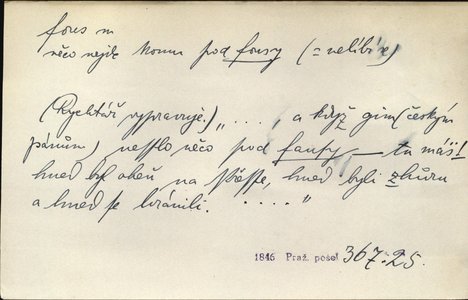 fous m
něco nejde komu pod fousy (= nelíbí se)
(Rychtář vypravuje.) „ . . . , a když gim (českým
pánům) nesslo něco pod faufy, — tu máš!
hned byl oheň na střesse, hned byli zhůru
a hned se bránili. . . . . "
1846 Praž. posel 367.25.